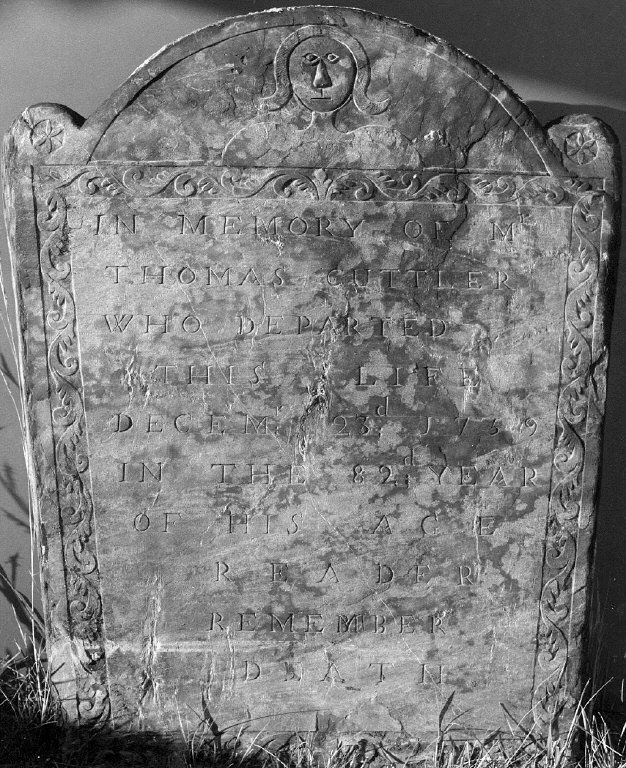 IN MEMORY OF Mr
THOMAS CUTTLER
WHO DEPARTED
THIS LIFE
DECEMr 23d. 1759
IN THE 82d. YEAR
OF HIS AGE
READER
REMEMBER
DEATH